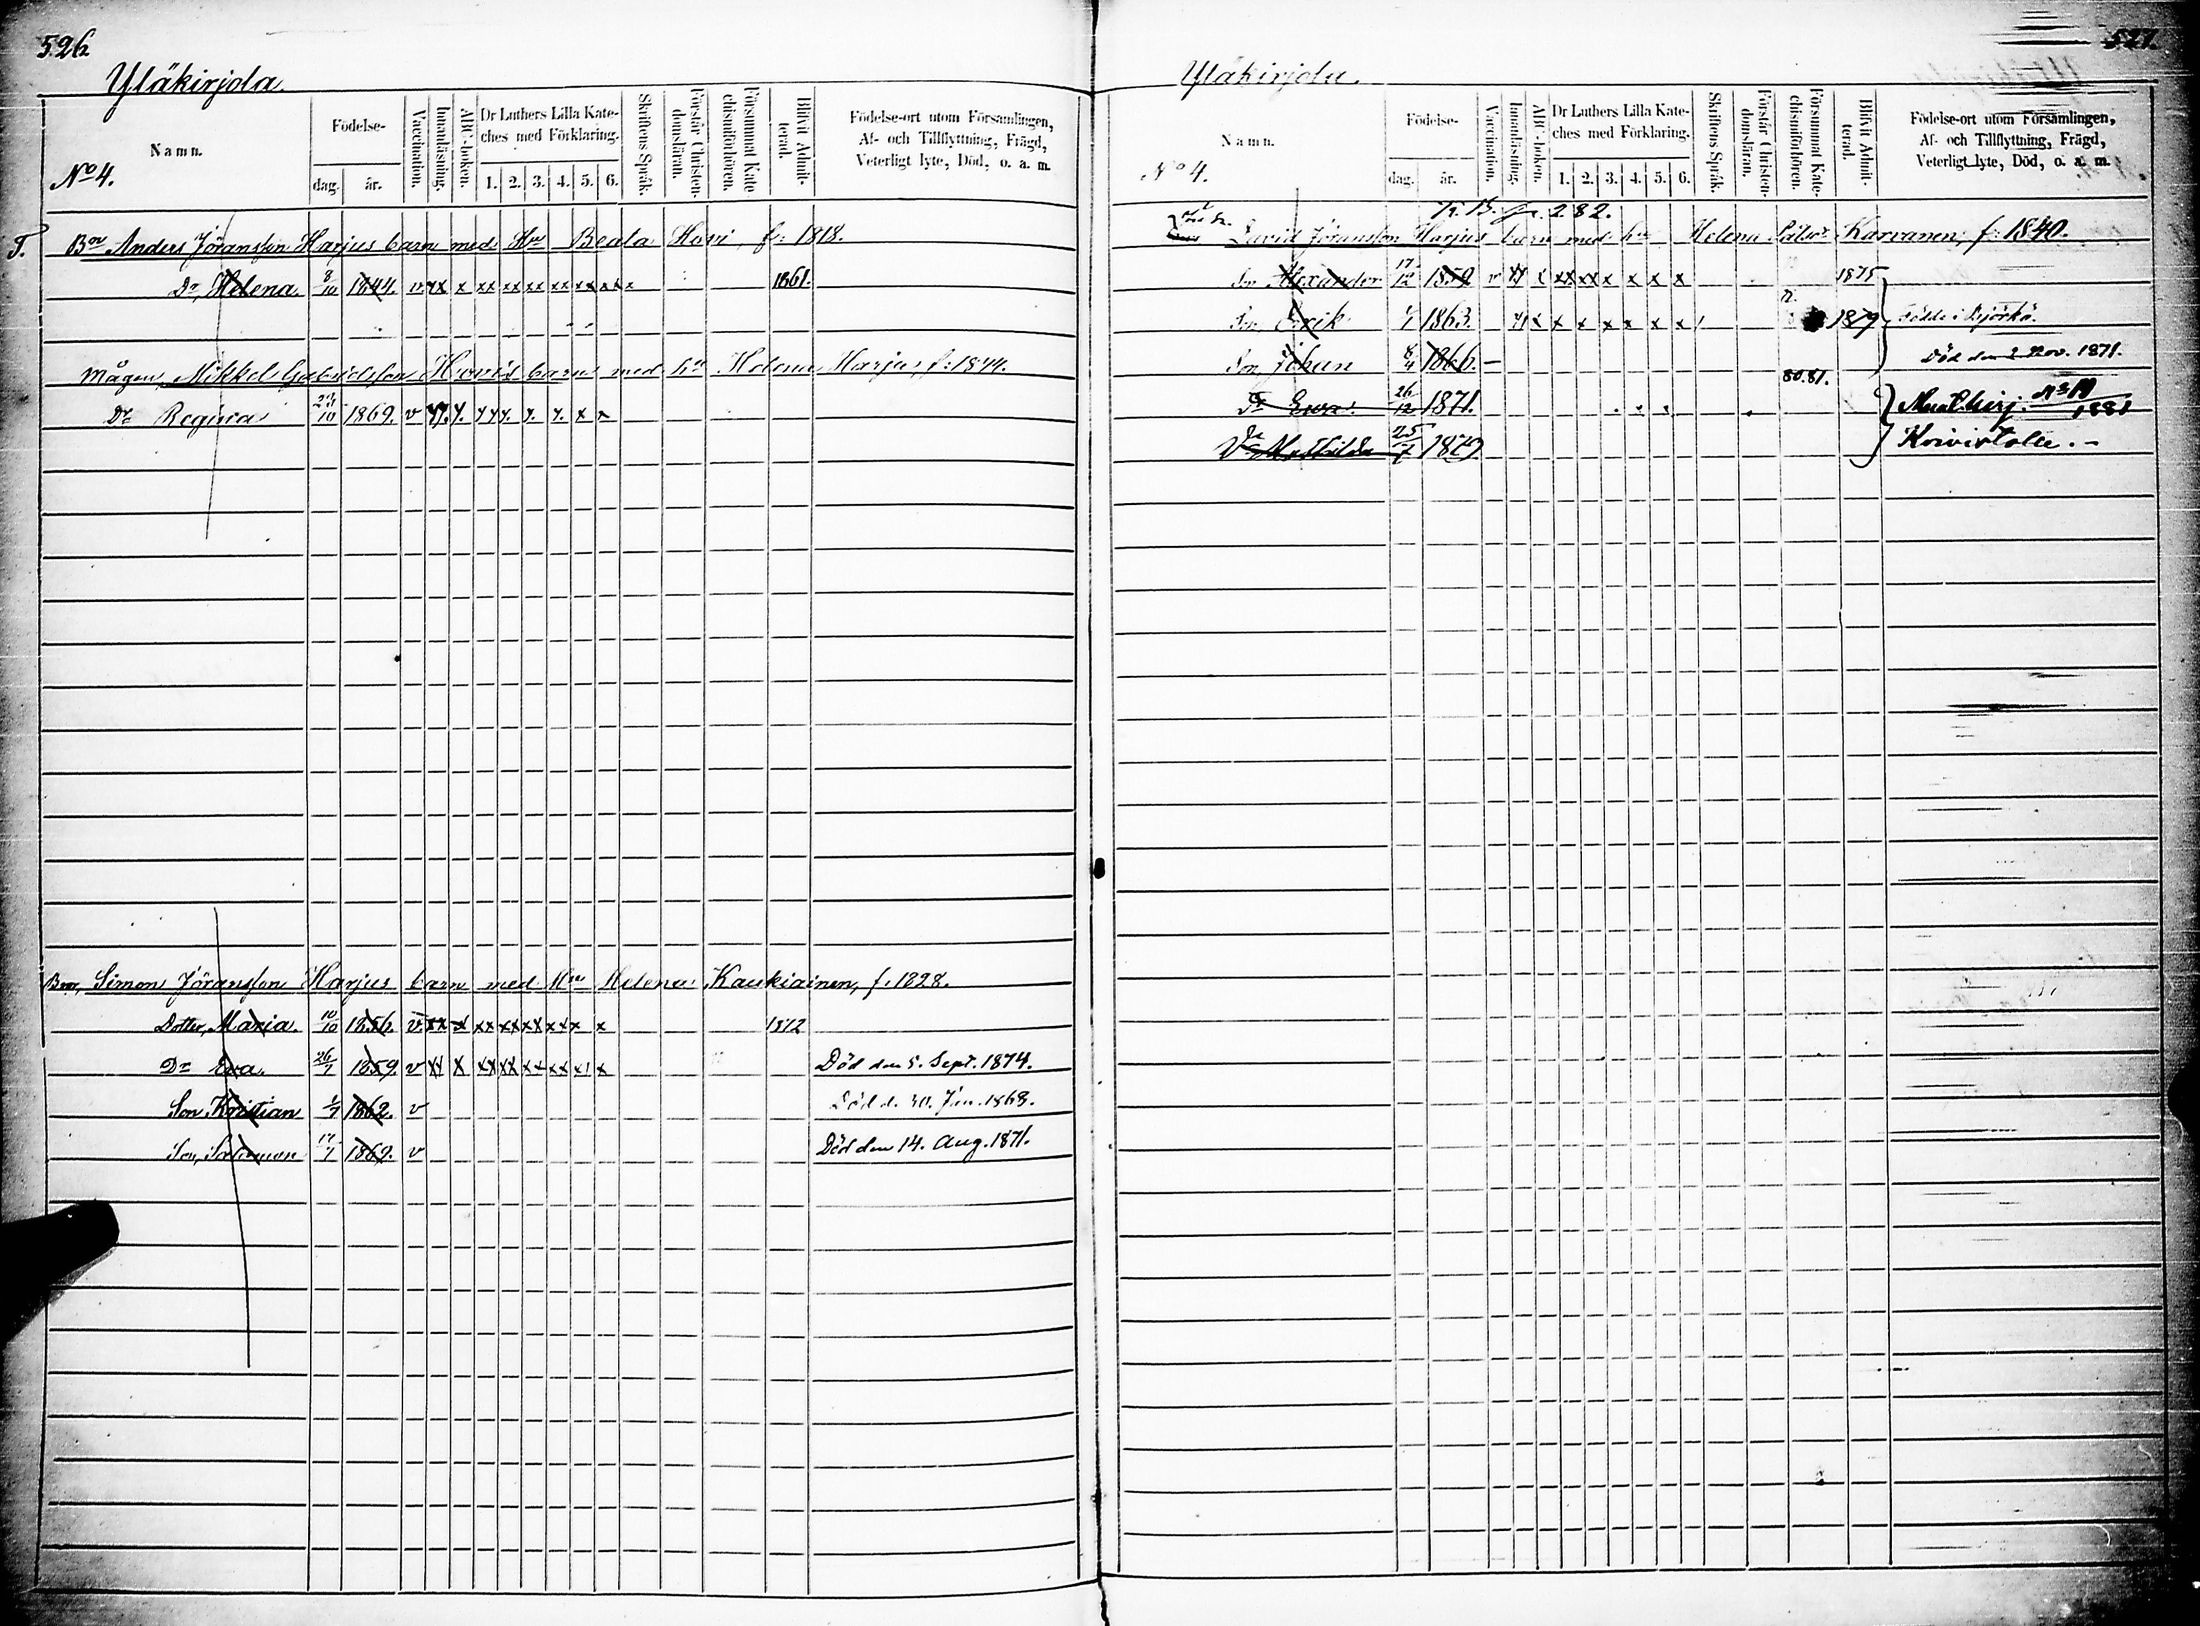 526.
Yläkirjola.
Namn.
No 4.
Födelse-
dag. år.
Vaccination.
Innanläsning.
ABC-boken.
Dr Luthers Lilla Kateches med Förklaring.
1. 2. 3. 4. 5. 6.
Skriftens Språk.
Förstår Christendomsläran.
Försummat Katechismiförhören.
Blifvit Admitterad.
Födelse-ort utom Församlingen,
Af- och Tillflyttning, Frägd,
Veterligt lyte, Död, o. a. m.
T. Bor Anders Jöransson Harjus barn med Hu Beata Hovi, f: 1818.
Dr, Helena. 8/10 1844. v. xx x xx xx xx xx xx xxx 1861.
Mågen, Mikkel Gabrielsson Hovis barn med hu Helena Harjus, f: 1844.
Dr Regina 23/10 1869. v
Bror, Simon Jöransson Harjus barn med Hu Helena Kaukiainen, f. 1828.
Dotter, Maria. 10/10 1856. v. xx x xx xx xx xx x x 1872
Dr Eva. 26/7 1859. v xx x xx xx xx xx x x Död den 5. Sept. 1874.
Son, Kristian 1/7 1862. v Död d. 30. Jun. 1868.
Son, Salomon 17/7 1869. v Död den 14. Aug. 1871.
527.
Yläkirjola.
Namn.
No 4.
Födelse-
dag. år.
Vaccination.
Innanläsning.
ABC-boken.
Dr Luthers Lilla Kateches med Förklaring.
1. 2. 3. 4. 5. 6.
Skriftens Språk.
Förstår Christendomsläran.
Försummat Katechismiförhören.
Blifvit Admitterad.
Födelse-ort utom Församlingen,
Af- och Tillflyttning, Frägd,
Veterligt lyte, Död, o. a. m.
282.
David Jöransson Harjus barn med hu Helena Karvanen, f: 1840.
Son Alexander 17/12 1859 v xx x xx xx x x x x 1875
Son, Erik 1/7 1863. x x x x x x x 1879 Födde i Björkö.
Son, Johan 8/4 1866. - Död den 2 Nov. 1871.
Dr Ewa. 26/12 1871. 80.81. No 10 1881
Dr Mathilda 25/7 1879 Koivistolle. -